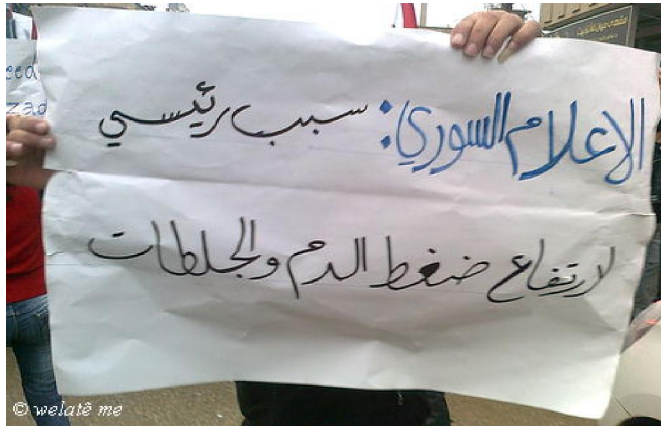 الاعلام السوري: سبب رئيسي
لارتفاع ضغط الدم والجلطات
© welatê me